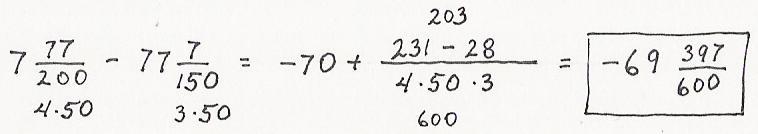 203
7 77/200 - 77 7/150 = -70 + (231 - 28)/(4·50·3) = -69 397/600
4·50 3·50 600